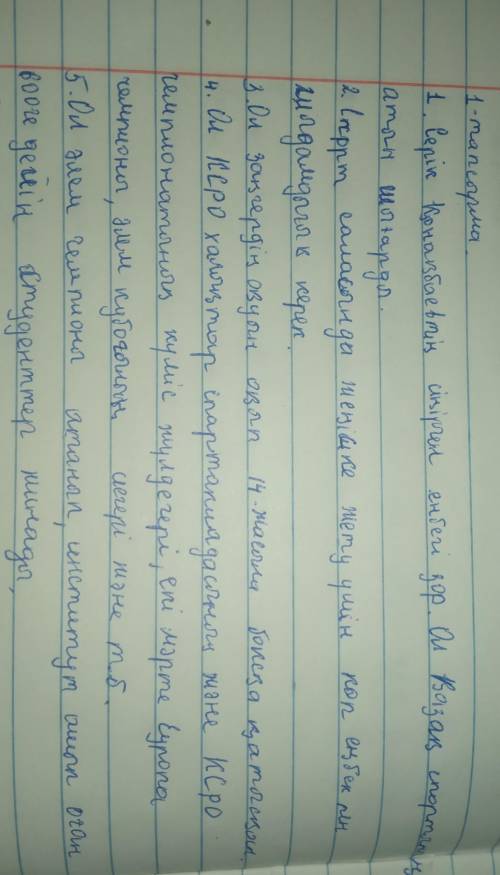 1-тапсырма.
1. Серік Қонақбаевтің сіңірген еңбегі зор. Ол Қазақ спортының
атын шығарды.
2. Спорт саласында жеңіске жету үшін көп еңбек пен
шыдамдылық керек.
3. Ол заңгердің оқуын оқып 14-жасына боксқа қатысқан.
4. Ол КСРО халықтар спартакиадасының және КСРО
чемпионатының күміс жүлдегері, екі мәрте Еуропа
чемпионы, әлем кубогының иегері және т.б.
5. Ол әлем чемпионы атанып, институт ашып оған
8000ге дейін студенттер жинады,